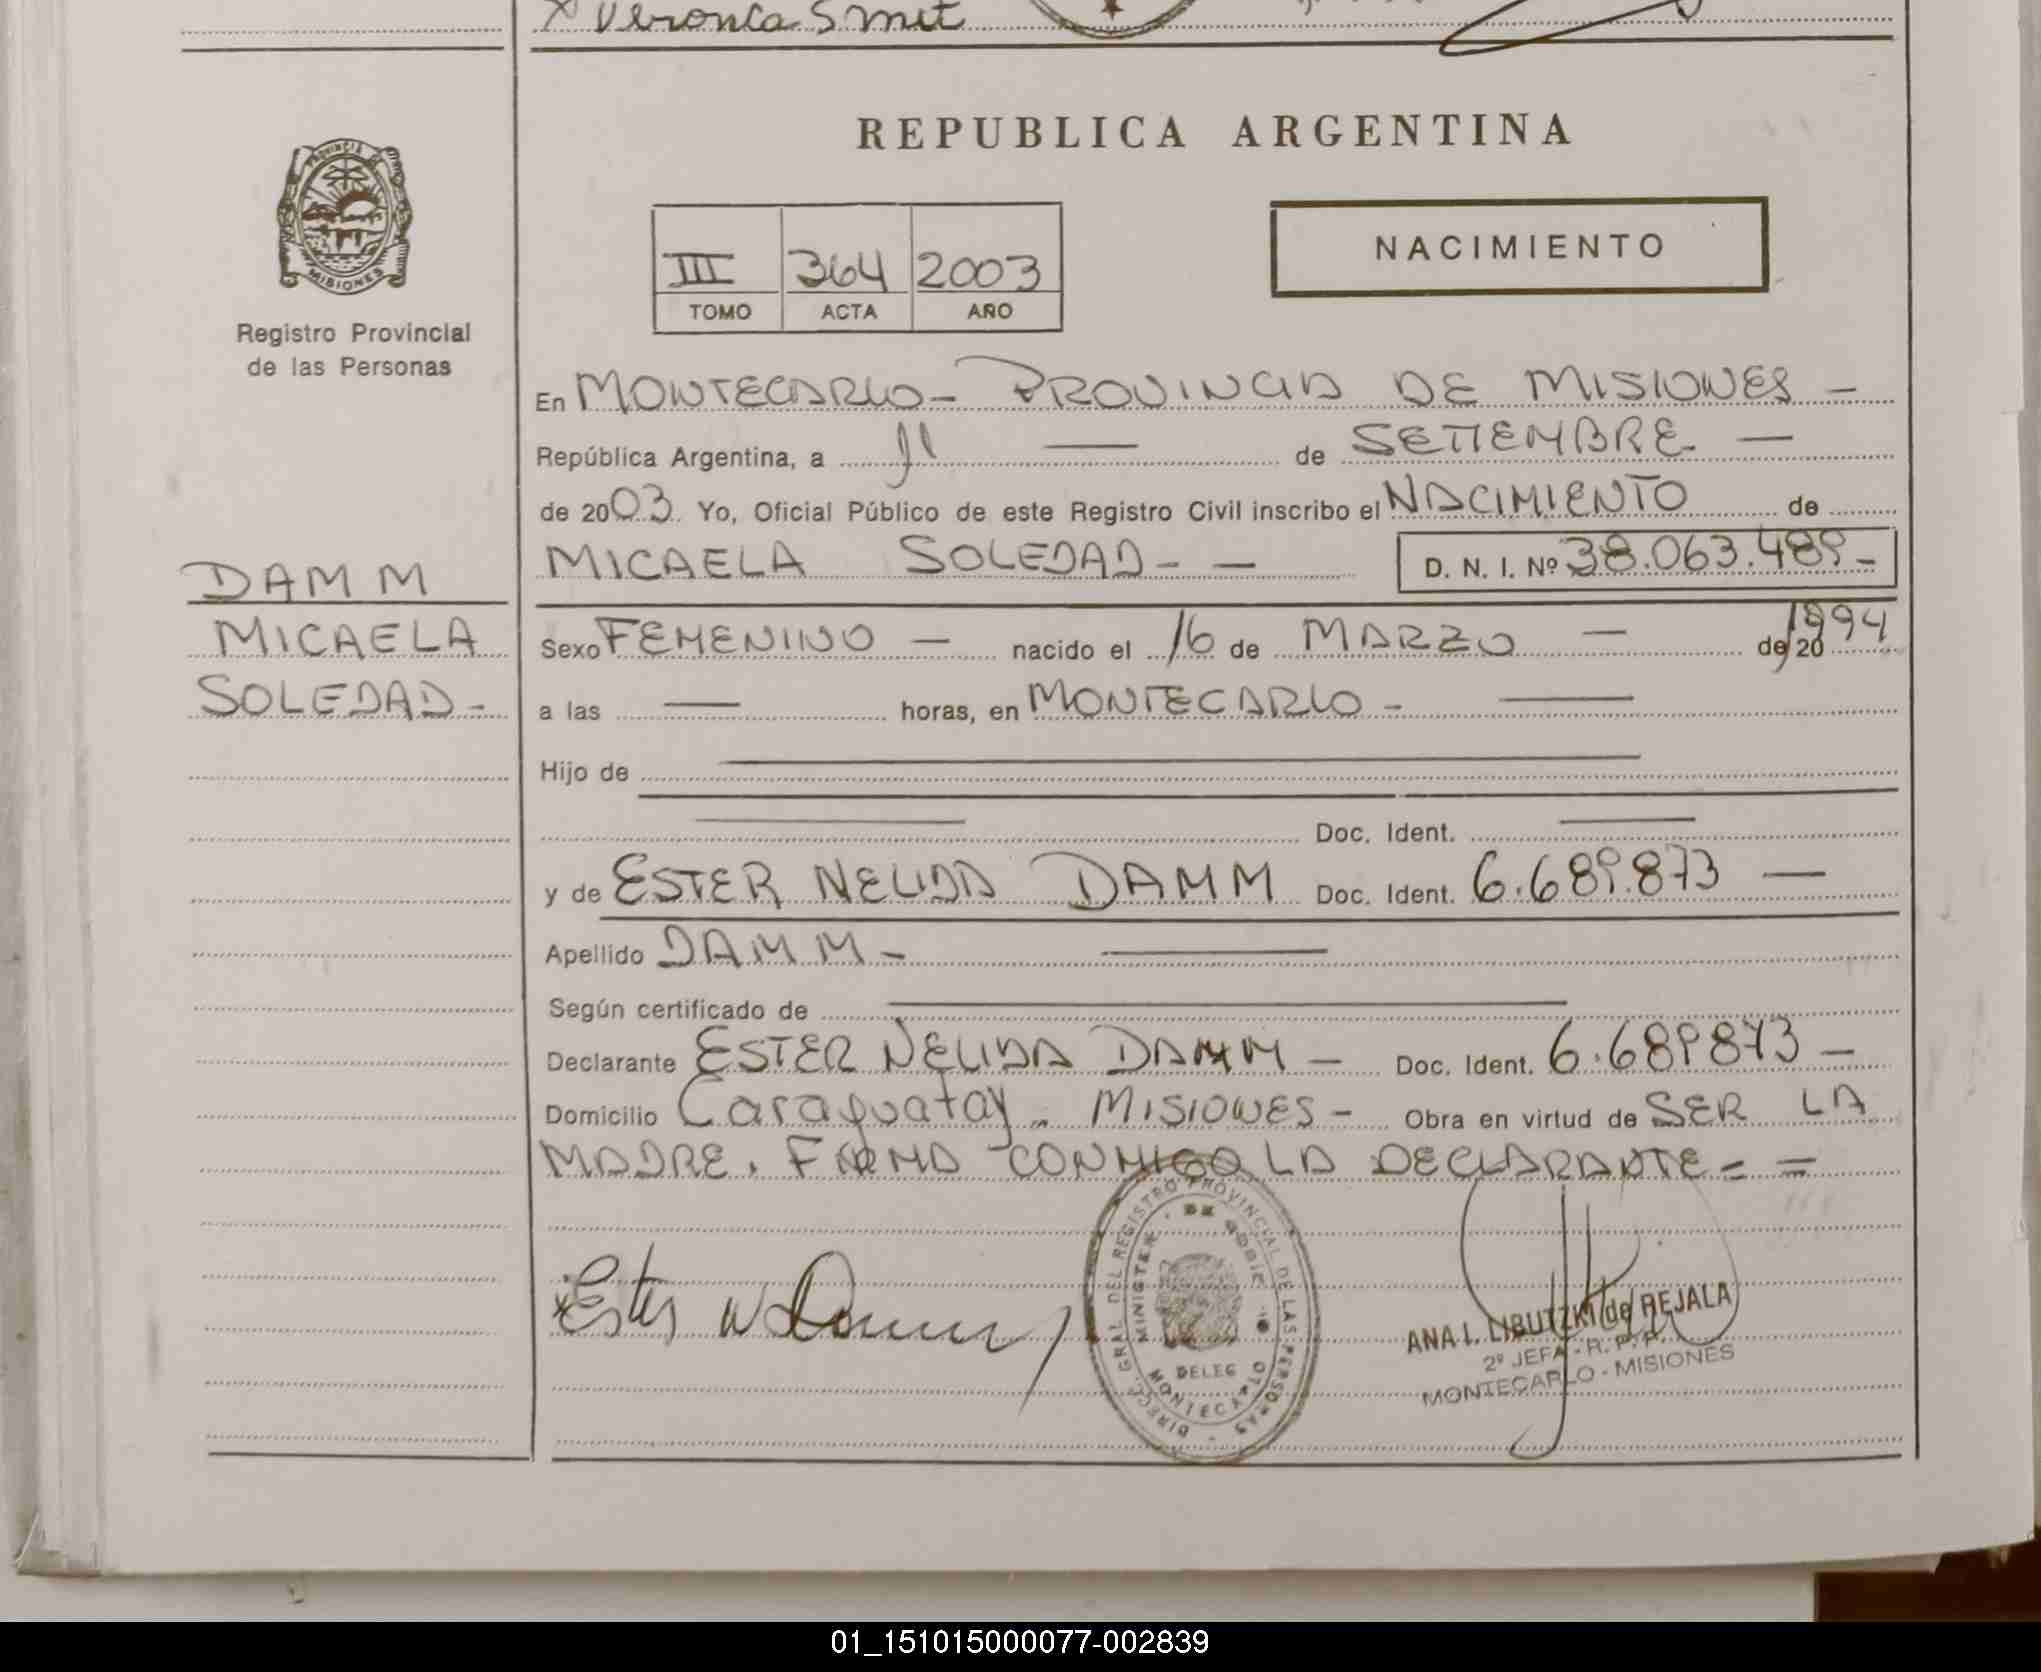 x Veronica Smit
PROVINCIA DE
MISIONES
Registro Provincial
de las Personas
REPUBLICA ARGENTINA
III 364 2003
TOMO ACTA AÑO
NACIMIENTO
En MONTECARLO - PROVINCIA DE MISIONES -
República Argentina, a 11 — de SETIEMBRE —
de 2003. Yo, Oficial Público de este Registro Civil inscribo el NACIMIENTO de
MICAELA SOLEDAD - — D. N. I. Nº 38.063.489 -
DAMM
MICAELA
SOLEDAD -
Sexo FEMENINO — nacido el 16 de MARZO — de 20 1994
a las — horas, en MONTECARLO - —
Hijo de —
— Doc. Ident. —
y de ESTER NELIDA DAMM Doc. Ident. 6.689.873 —
Apellido DAMM - —
Según certificado de —
Declarante ESTER NELIDA DAMM — Doc. Ident. 6.689873 —
Domicilio Caraguatay - MISIONES - Obra en virtud de SER LA
MADRE. FIRMA CONMIGO LA DECLARANTE = =
x Ester N Damm
DIRECC. GRAL. DEL REGISTRO PROVINCIAL DE LAS PERSONAS
DELEG
MONTECARLO
ANA I. LIBUTZKI de REJALA
2º JEFA - R. P. P.
MONTECARLO - MISIONES
01_151015000077-002839